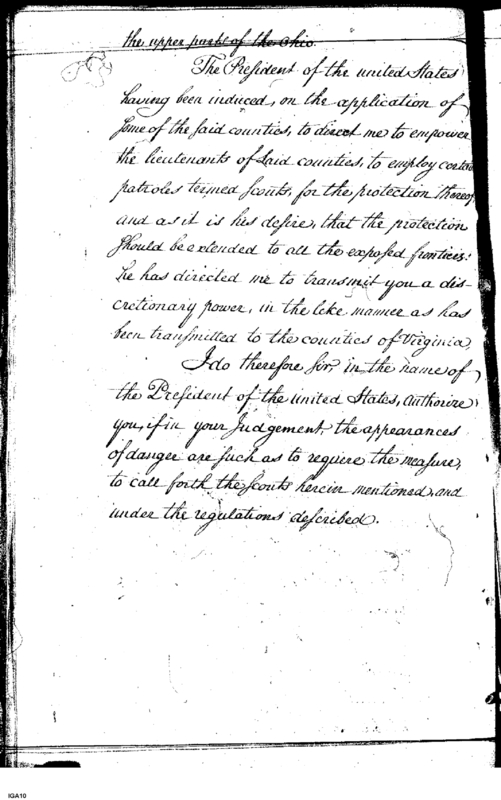 the upper parts of the Ohio.
The President of the united States
having been induced, on the application of
some of the said counties, to direct me to empower
the lieutenants of said counties, to employ certain
patroles termed Scouts, for the protection thereof
and as it is his desire, that the protection
should be extended to all the exposed frontiers:
he has directed me to transmit you a dis-
cretionary power, in the like manner as has
been transmitted to the counties of Virginia
I do therefore sir, in the name of
the President of the united States, Authorize
you, if in your Judgement, the appearances
of danger are such as to require the measure,
to call forth the scouts herein mentioned, and
under the regulations described.
IGA10